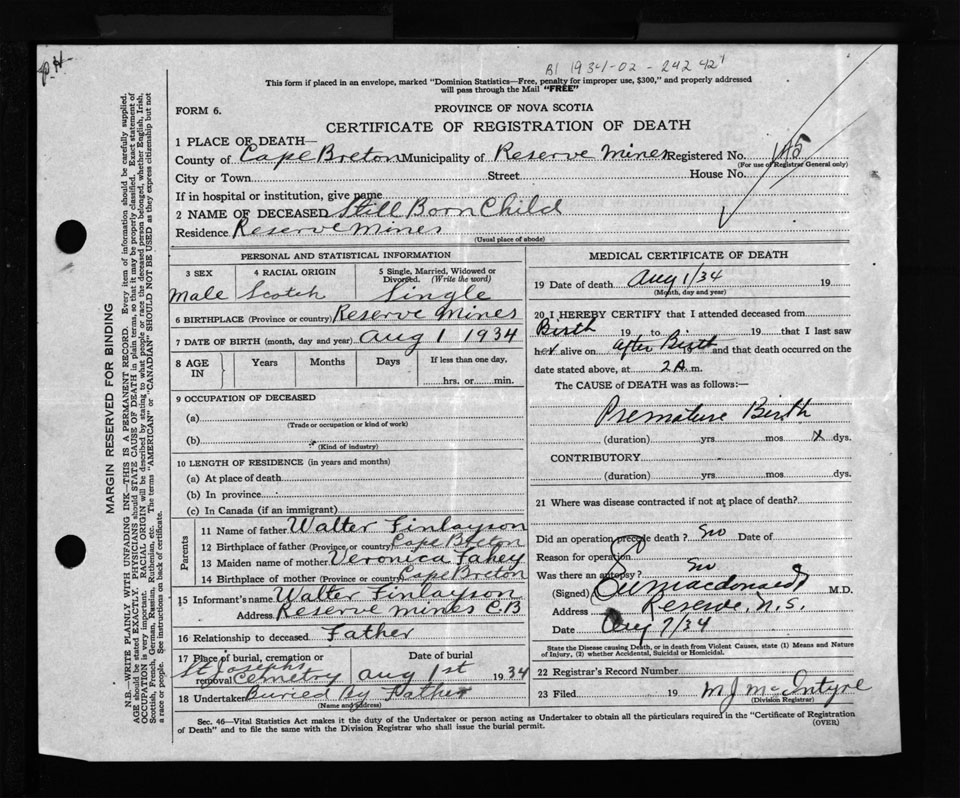 B1 1934-02-
This form if placed in an envelope, marked "Dominion Statistics—Free, penalty for improper use, $300," and properly addressed
will pass through the Mail "FREE"
FORM 6.
PROVINCE OF NOVA SCOTIA
CERTIFICATE OF REGISTRATION OF DEATH
1 PLACE OF DEATH—
County of Cape Breton Municipality of Reserve Mines Registered No.
(For use of Registrar General only)
City or Town Street House No.
If in hospital or institution, give name
2 NAME OF DECEASED Still Born Child
Residence Reserve Mines
(Usual place of abode)
PERSONAL AND STATISTICAL INFORMATION
3 SEX 4 RACIAL ORIGIN 5 Single, Married, Widowed or
Divorced. (Write the word)
Male Scotch Single
6 BIRTHPLACE (Province or country) Reserve Mines
7 DATE OF BIRTH (month, day and year) Aug 1 1934
8 AGE IN Years Months Days If less than one day,
hrs. or min.
9 OCCUPATION OF DECEASED
(a)
(Trade or occupation or kind of work)
(b)
(Kind of industry)
10 LENGTH OF RESIDENCE (in years and months)
(a) At place of death
(b) In province
(c) In Canada (if an immigrant)
Parents
11 Name of father Walter Finlayson
12 Birthplace of father (Province or country) Cape Breton
13 Maiden name of mother Veronica Fahey
14 Birthplace of mother (Province or country) Cape Breton
15 Informant's name Walter Finlayson
Address Reserve Mines C.B
16 Relationship to deceased Father
17 Place of burial, cremation or removal Date of burial
St Josephs Cemetry Aug 1st 1934
18 Undertaker Buried By Father
(Name and address)
MEDICAL CERTIFICATE OF DEATH
19 Date of death Aug 1/34 19
(Month, day and year)
20 I HEREBY CERTIFY that I attended deceased from
Birth 19 to 19 that I last saw
alive on after Birth and that death occurred on the
date stated above, at 2 A.m.
The CAUSE OF DEATH was as follows:—
Premature Birth
(duration) yrs. mos. X dys.
CONTRIBUTORY
(duration) yrs. mos. dys.
21 Where was disease contracted if not at place of death?
Did an operation precede death? no Date of
Reason for operation
Was there an autopsy? no
(Signed) Macdonald M.D.
Address Reserve, N.S.
Date Aug 7/34
State the Disease causing Death, or in death from Violent Causes, state (1) Means and Nature
of Injury, (2) whether Accidental, Suicidal or Homicidal.
22 Registrar's Record Number
23 Filed 19 M J McIntyre
(Division Registrar)
Sec. 46—Vital Statistics Act makes it the duty of the Undertaker or person acting as Undertaker to obtain all the particulars required in the "Certificate of Registration
of Death" and to file the same with the Division Registrar who shall issue the burial permit. (OVER)
MARGIN RESERVED FOR BINDING
N.B.—WRITE PLAINLY WITH UNFADING INK—THIS IS A PERMANENT RECORD. Every item of information should be carefully supplied.
AGE should be stated EXACTLY. PHYSICIANS should STATE CAUSE OF DEATH in plain terms, so that it may be properly classified. Exact statement of
OCCUPATION is very important. RACIAL ORIGIN will be described by stating to what people or race the deceased person belonged, whether English, Irish,
Scottish, French, German, Russian, Ruthenian, etc. The terms "AMERICAN" or "CANADIAN" SHOULD NOT BE USED as they express citizenship but not
a race or people. See instructions on back of certificate.